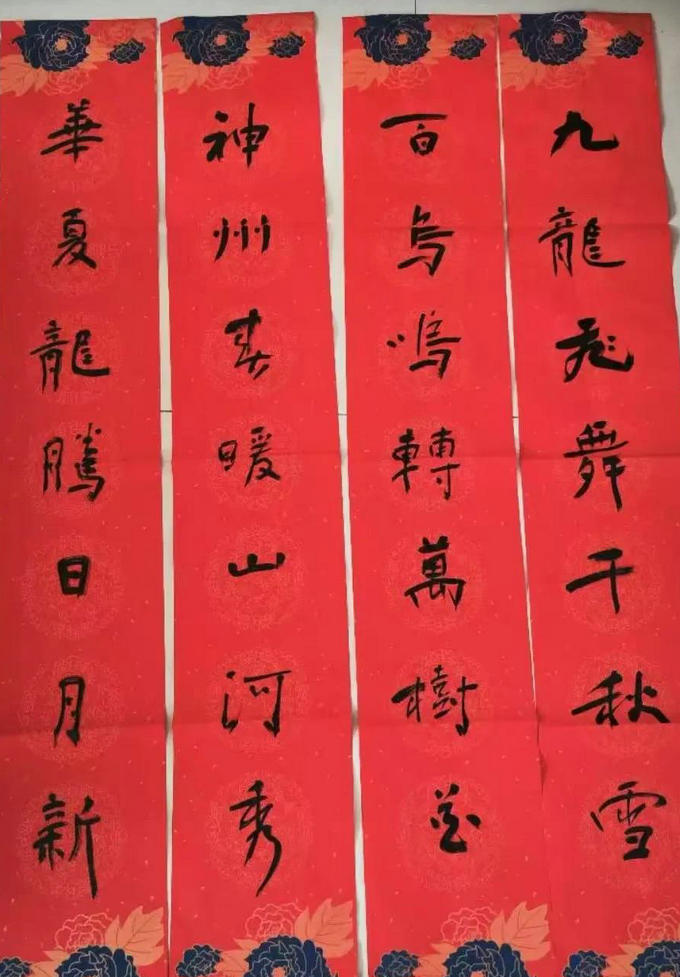 九龍飛舞千秋雪
百鳥鳴轉萬樹花
神州春暖山河秀
華夏龍騰日月新